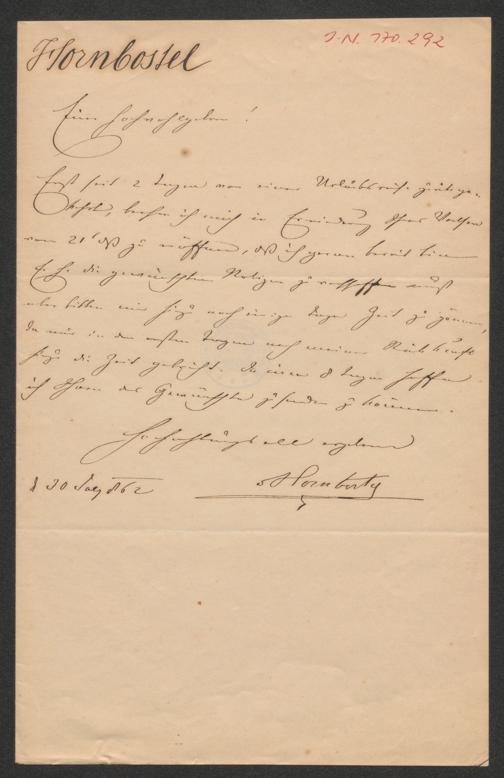 Hornbostel
I.N. 170.292
Euer Hochwohlgeboren!
Erst seit 2 Tagen von einer Urlaubsreise zurückge-
kehrt, beehre ich mich in Erwiderung Ihres
vom 21t dß zu eröffnen, daß ich gerne bereit bin
E. H. die gewünschten Notizen zu verschaffen, muß
aber bitten mir hiezu noch einige Tage Zeit zu gönnen,
da mir in den ersten Tagen nach meiner Rückkunft
hiezu die Zeit gebricht. In circa 8 Tagen hoffe
ich Ihnen das Gewünschte zusenden zu können.
Hochachtungsvoll ergebener
Hornbostel
d 30 862